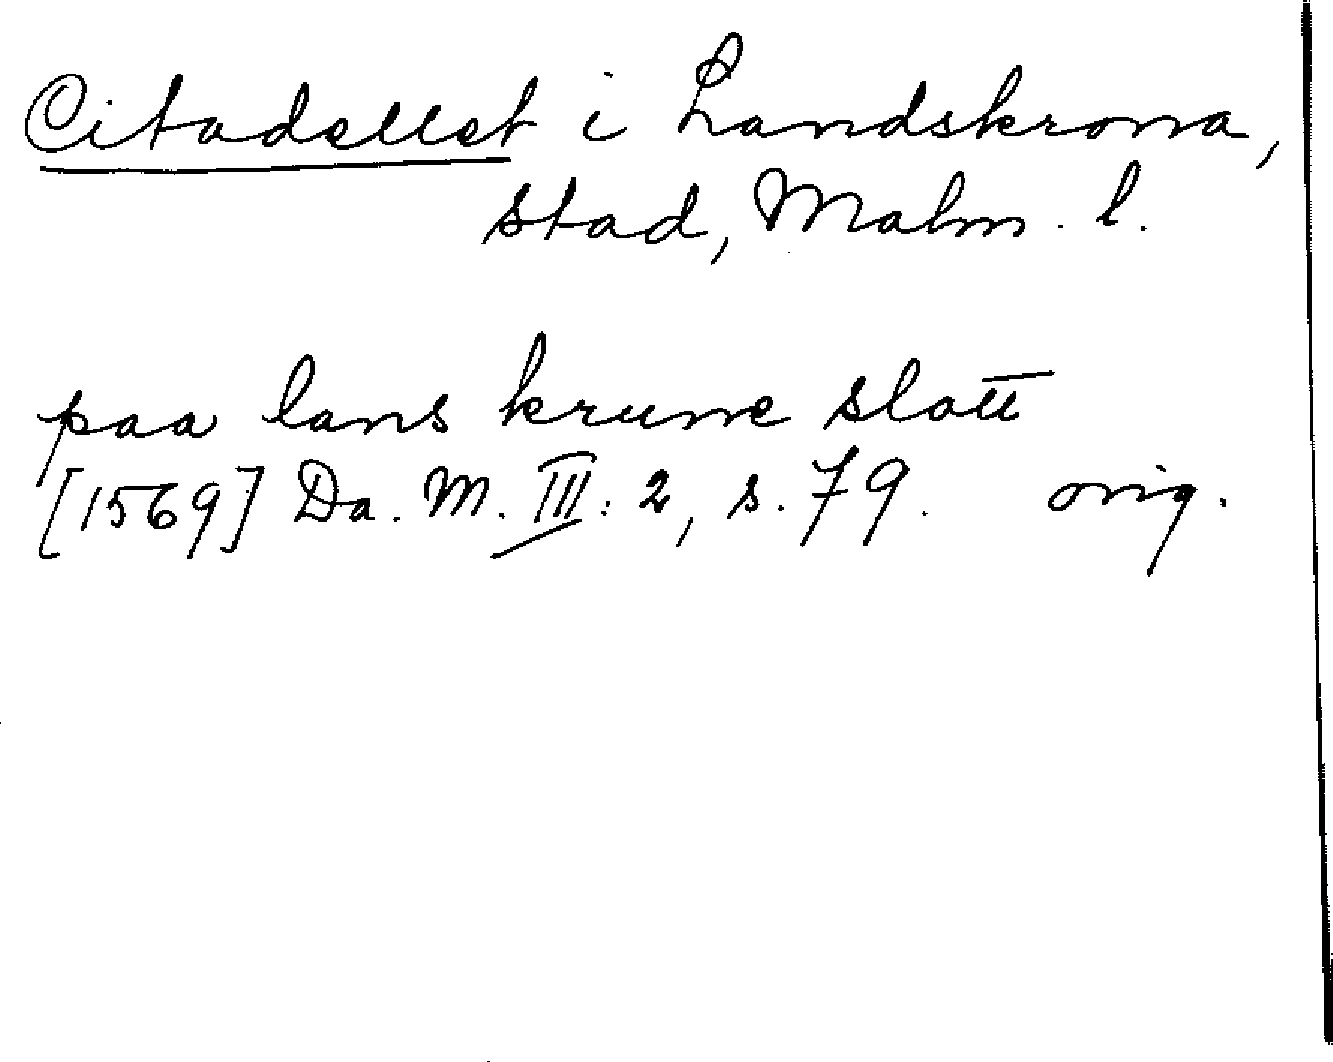 Citadellet i Landskrona,
stad, Malm. l.
paa lans krune slott
[1569] Da. M. III: 2, s. 79. orig.